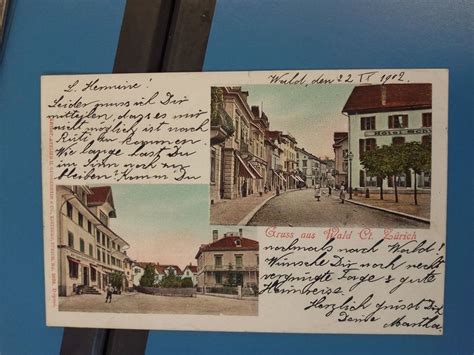 L. Hermine!
Wald, den 22 VI 1902.
Leider muss ich Dir
mitteilen, dass es mir
nicht möglich ist nach
Rüti zu kommen
Wie lange hast Du
im Sinn noch da zu
bleiben? Kommst Du
Hotel
Gruss aus Wald Ct. Zürich
nochmals nach Wald?
Wünsche Dir noch recht
vergnügte Tage & gute
Heimreise.
Herzlich grüsst Dich
Deine Martha